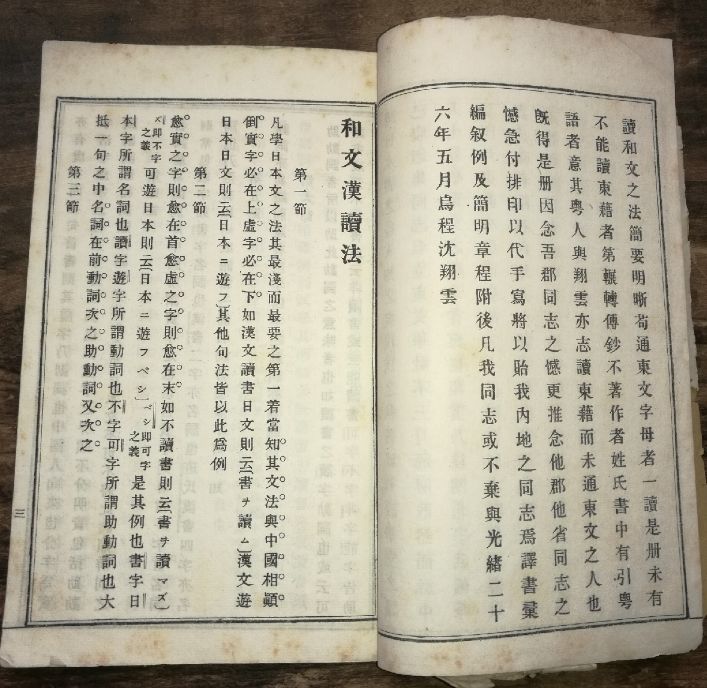 讀和文之法簡要明晰苟通東文字母者一讀是册未有
不能讀東藉者第輾轉傳鈔不著作者姓氏書中有引粤
語者意其粤人與翔雲亦志讀東藉而未通東文之人也
旣得是册因念吾郡同志之憾更推念他郡他省同志之
憾急付排印以代手寫將以貽我內地之同志焉譯書彙
編叙例及簡明章程附後凡我同志或不棄與光緒二十
六年五月烏程沈翔雲
和文漢讀法
第一節
凡學日本文之法其最淺而最要之第一着當知其文法與中國相顚
倒實字必在上虛字必在下如漢文讀書日文則云(書ヲ讀ム)漢文遊
日本日文則云(日本ニ遊フ)其他句法皆以此爲例
第二節
愈實之字則愈在首愈虛之字則愈在末如不讀書則云(書ヲ讀マズ)
ズ即不字之義可遊日本則云(日本ニ遊フベシ)ベシ即可字之義是其例也書字日
本字所謂名詞也讀字遊字所謂動詞也不字可字所謂助動詞也大
抵一句之中名詞在前動詞次之助動詞又次之
第三節
三